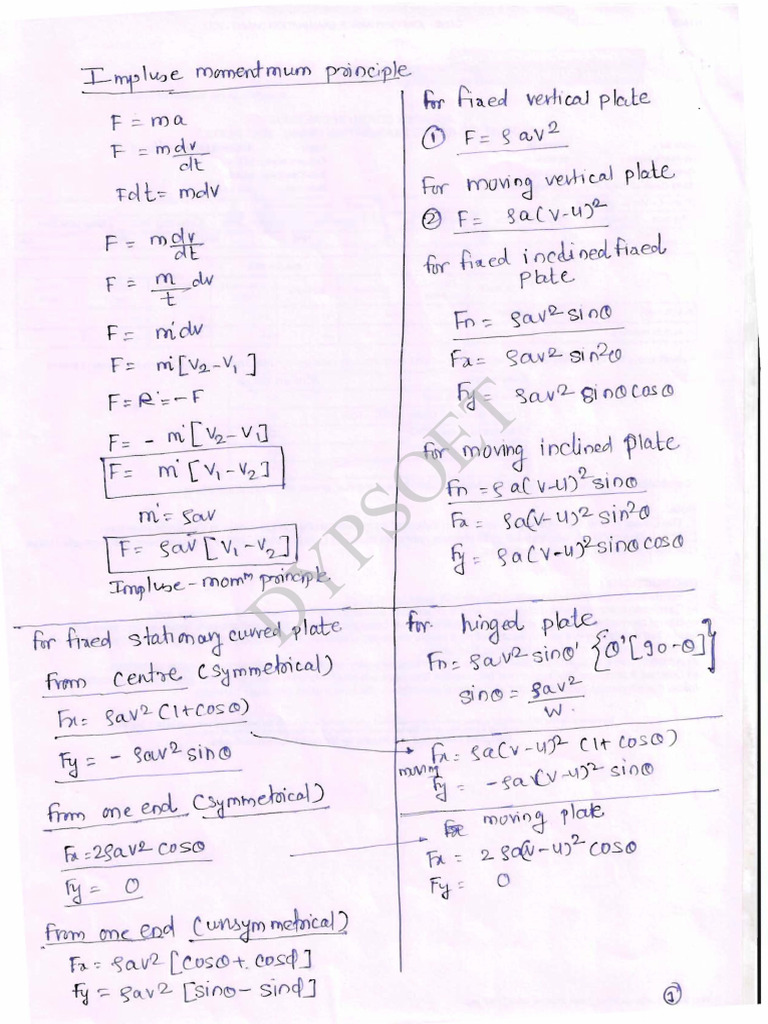 Impluse momentmum principle
F = ma
F = m dv/dt
Fdt = mdv
F = m dv/dt
F = m/t dv
F = ṁdv
F = ṁ[V2-V1]
F=R=-F
F= - ṁ[V2-V1]
F= ṁ[V1-V2]
ṁ= ρav
F= ρav[V1-V2]
Impluse-momⁿ principle.
for fixed vertical plate
① F= ρav²
For moving vertical plate
② F= ρa(v-u)²
for fixed inclined fixed
plate
Fn = ρav² sinθ
Fx= ρav² sin²θ
Fy= ρav² sinθcosθ
for moving inclined plate
Fn = ρa(v-u)² sinθ
Fx= ρa(v-u)² sin²θ
Fy= ρa(v-u)² sinθcosθ
for fixed stationary curved plate
from centre (symmetrical)
Fx= ρav² (1+cosθ)
Fy= - ρav² sinθ
from one end (symmetrical)
Fx=2ρav² cosθ
Fy= 0
from one end (unsymmetrical)
Fx= ρav² [cosθ+cosϕ]
Fy= ρav² [sinθ-sinϕ]
for hinged plate
Fn= ρav² sinθ' {θ'[90-θ]}
sinθ = ρav²/W.
Fx= ρa(v-u)² (1+cosθ)
moving
Fy= -ρa(v-u)² sinθ
moving plate
Fx= 2ρa(v-u)² cosθ
Fy= 0
①
DYPSOET